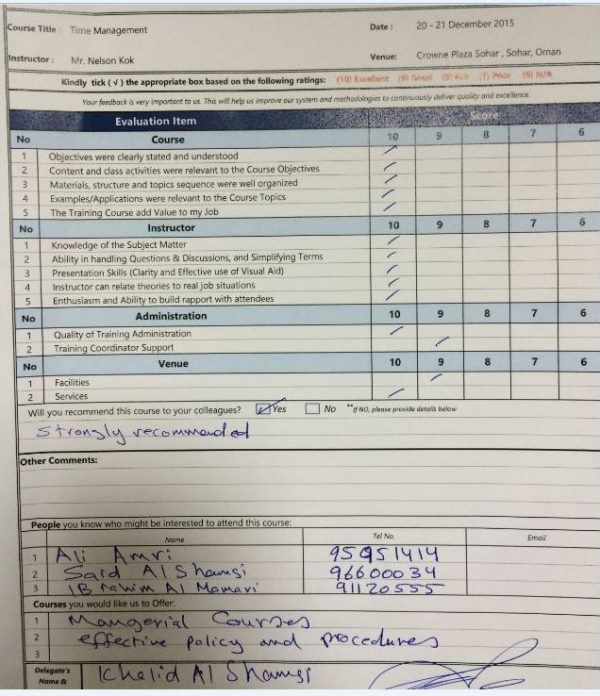 Course Title : Time Management Date : 20 - 21 December 2015
Instructor : Mr. Nelson Kok Venue: Crowne Plaza Sohar , Sohar, Oman
Kindly tick ( √ ) the appropriate box based on the following ratings: (10) Excellent (9) Good (8) Fair (7) Poor (6) N/A
Your feedback is very important to us. This will help us improve our system and methodologies to continuously deliver quality and excellence.
Evaluation Item Score
No Course 10 9 8 7 6
1 Objectives were clearly stated and understood
2 Content and class activities were relevant to the Course Objectives
3 Materials, structure and topics sequence were well organized
4 Examples/Applications were relevant to the Course Topics
5 The Training Course add Value to my Job
No Instructor 10 9 8 7 6
1 Knowledge of the Subject Matter
2 Ability in handling Questions & Discussions, and Simplifying Terms
3 Presentation Skills (Clarity and Effective use of Visual Aid)
4 Instructor can relate theories to real job situations
5 Enthusiasm and Ability to build rapport with attendees
No Administration 10 9 8 7 6
1 Quality of Training Administration
2 Training Coordinator Support
No Venue 10 9 8 7 6
1 Facilities
2 Services
Will you recommend this course to your colleagues? Yes No "If NO, please provide details below
Strongly recommended
Other Comments:
People you know who might be interested to attend this course:
Name Tel No. Email
1 Ali Amri 95951414
2 Said Al Shamsi 96600034
3 IBrahim Al Mamari 91120555
Courses you would like us to Offer:
1 Mangerial Courses
2 effective policy and procedures
3
Delegate's Name & Khalid Al Shamsi